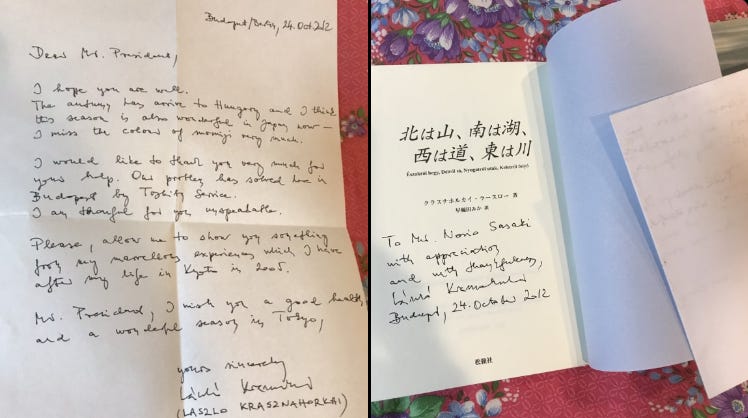 Budapest/Berlin, 24. Oct. 2012
Dear Mr. President,
I hope you are well.
The autumn has arrive to Hungary and I think
this season is also wonderful in Japan now –
I miss the colour of momiji very much.
I would like to thank you very much for
your help. Our problem has solved here in
Budapest by Toshiba Service.
I am thankful for you unspeakable.
Please, allow me to show you something
from my marvellous experiences which I have
after my life in Kyoto in 2005.
Mr. President, I wish you a good health,
and a wonderful season in Tokyo,
yours sincerely
László Krasznahorkai
(LASZLO KRASZNAHORKAI)
北は山、南は湖、
西は道、東は川
Északról hegy, Délről tó, Nyugatról utak, Keletről folyó
クラスナホルカイ・ラースロー 著
早稲田みか 訳
To Mr. Norio Sasaki
with appreciation
and with thankfulness,
László Krasznahorkai
Budapest, 24. October 2012
松籟社